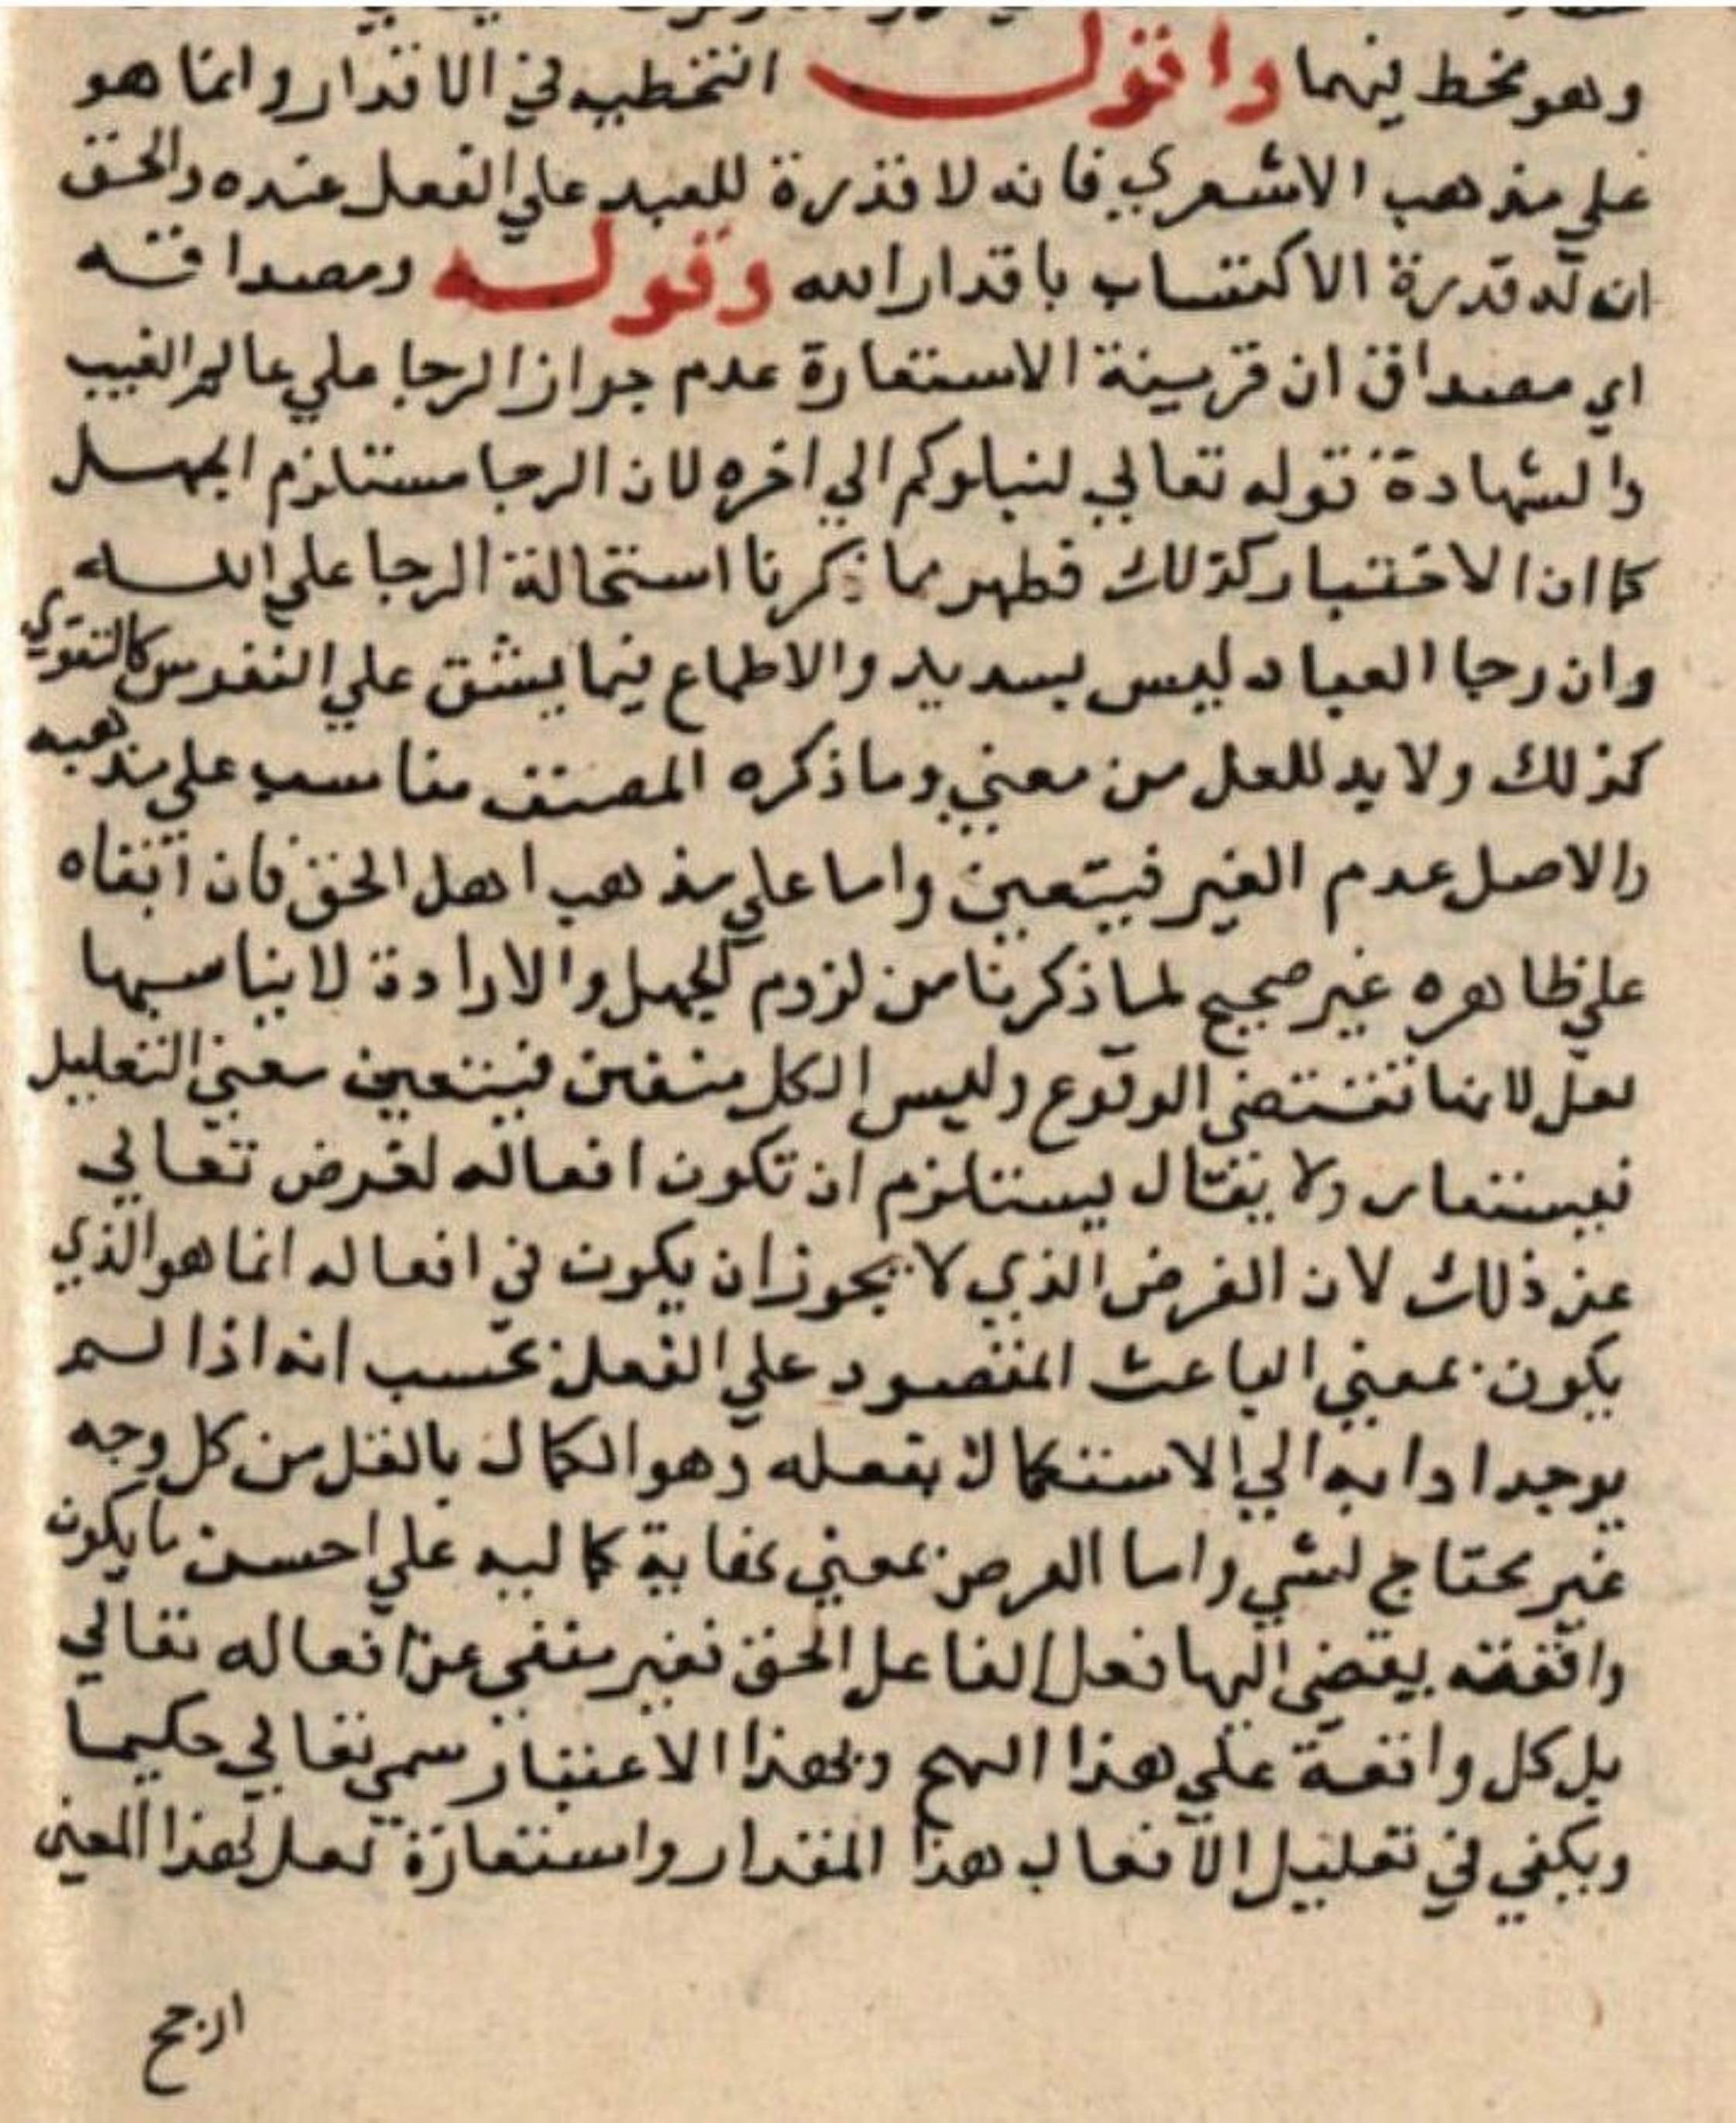 وهو مخط فيهما واقول التخطيه في الاقدار وانما هو
علي مذهب الاشعري فانه لا قدرة للعبد علي الفعل عنده والحق
ان له قدرة الاكتساب باقدار الله وقوله ومصداقه
اي مصداق ان قرينة الاستعارة عدم جواز الرجا علي عالم الغيب
والشهادة قوله تعالي لنبلوكم الي اخره لان الرجا مستلزم الجهل
كما ان الاختبار كذلك فظهر مما ذكرنا استحالة الرجا علي الله
وان رجا العباد ليس بسديد والاطماع فيما يشق علي النفوس كالتقوي
كذلك ولا بد للعل من معني وما ذكره المصنف مناسب علي مذهبه
والاصل عدم الغير فيتعين واما علي مذهب اهل الحق فان ابقاه
علي ظاهره غير صحيح لما ذكرنا من لزوم الجهل والارادة لا يناسبها
لعل لانها تقتضي الوقوع وليس الكل متقين فيتعين معني التعليل
فيستعار ولا يقال يستلزم ان تكون افعاله لغرض تعالي
عن ذلك لان الغرض الذي لا يجوز ان يكون في افعاله انما هو الذي
يكون بمعني الباعث المقصود علي الفعل بحسب انه اذا لم
يوجد الي الاستكمال بفعله وهو الكمال بالفعل من كل وجه
غير محتاج لشي واما الغرض بمعني غاية كماليه علي احسن ما يكون
واتقنه يقضي اليها فعل الفاعل الحق فغير منفي عن افعاله تعالي
بل كل واقعة علي هذا النهج وبهذا الاعتبار سمي تعالي حكيما
ويكفي في تعليل الافعال هذا المقدار واستعارة لعل لهذا المعني
ارجح